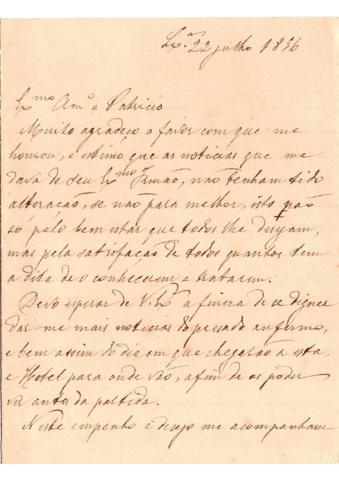 Lx.ª 22 julho 1896
Ex.mo Am.º e Patricio
Muito agradeço o favor com que me
honrou, e estimo que as noticias que me
dava de seu Ex.mo Irmão, não tenham tido
alteração, se não para melhor, isto não
só pelo bem estar que todos lhe desejam,
mas pela satisfação de todos quantos tem
a dita de o conhecerem e tratarem.
Devo esperar de V. Ex.ª a fineza de se dignar
dar me mais noticias do presado enfermo,
e bem assim do dia em que chegarão a esta,
e Hotel para onde vão, afim de os poder
ver antes da partida.
Neste empenho e desejo me acompanham